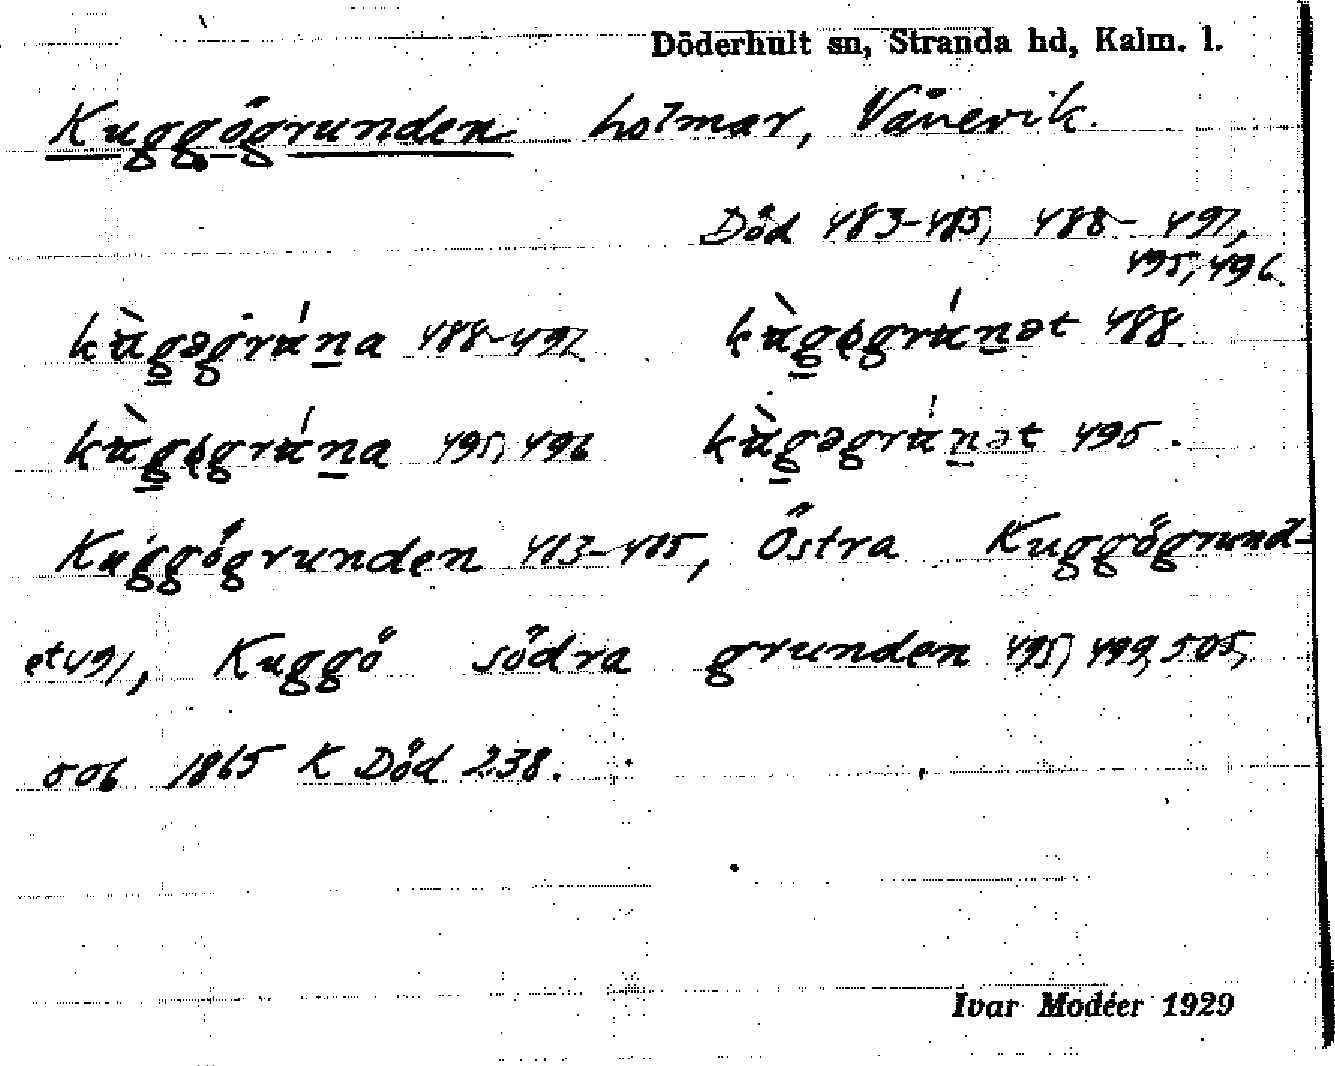 Döderhult sn, Stranda hd, Kalm. l.
Kuggögrunden holmar, Vånevik.
Död 483-485, 488-491,
495, 496.
kùgəgrúna 488-491 kùgəgrúnət 488
kùgəgrúna 495, 496 kùgəgrúnət 495.
Kuggögrunden 483-485, Östra Kuggögrund-
et 491, Kuggö södra grunden 495, 499, 505,
506 1865 K Död 238.
Ivar Modéer 1929